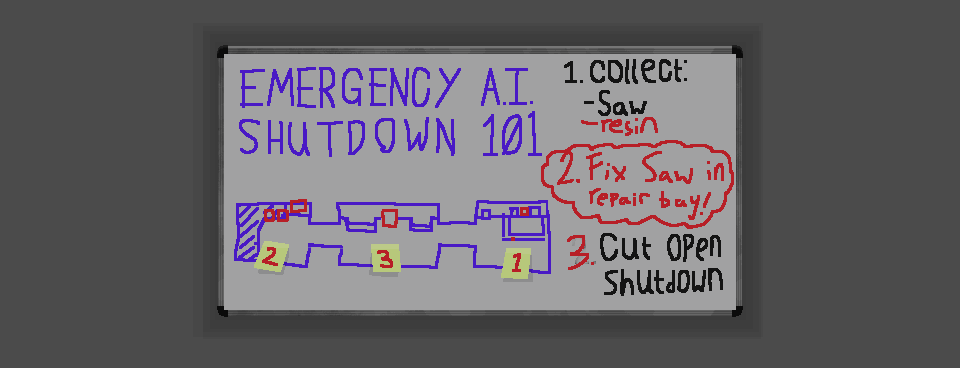 EMERGENCY A.I.
SHUTDOWN 101
1. Collect:
-Saw
-resin
2. Fix Saw in
repair bay!
3. Cut Open
Shutdown
2
3
1